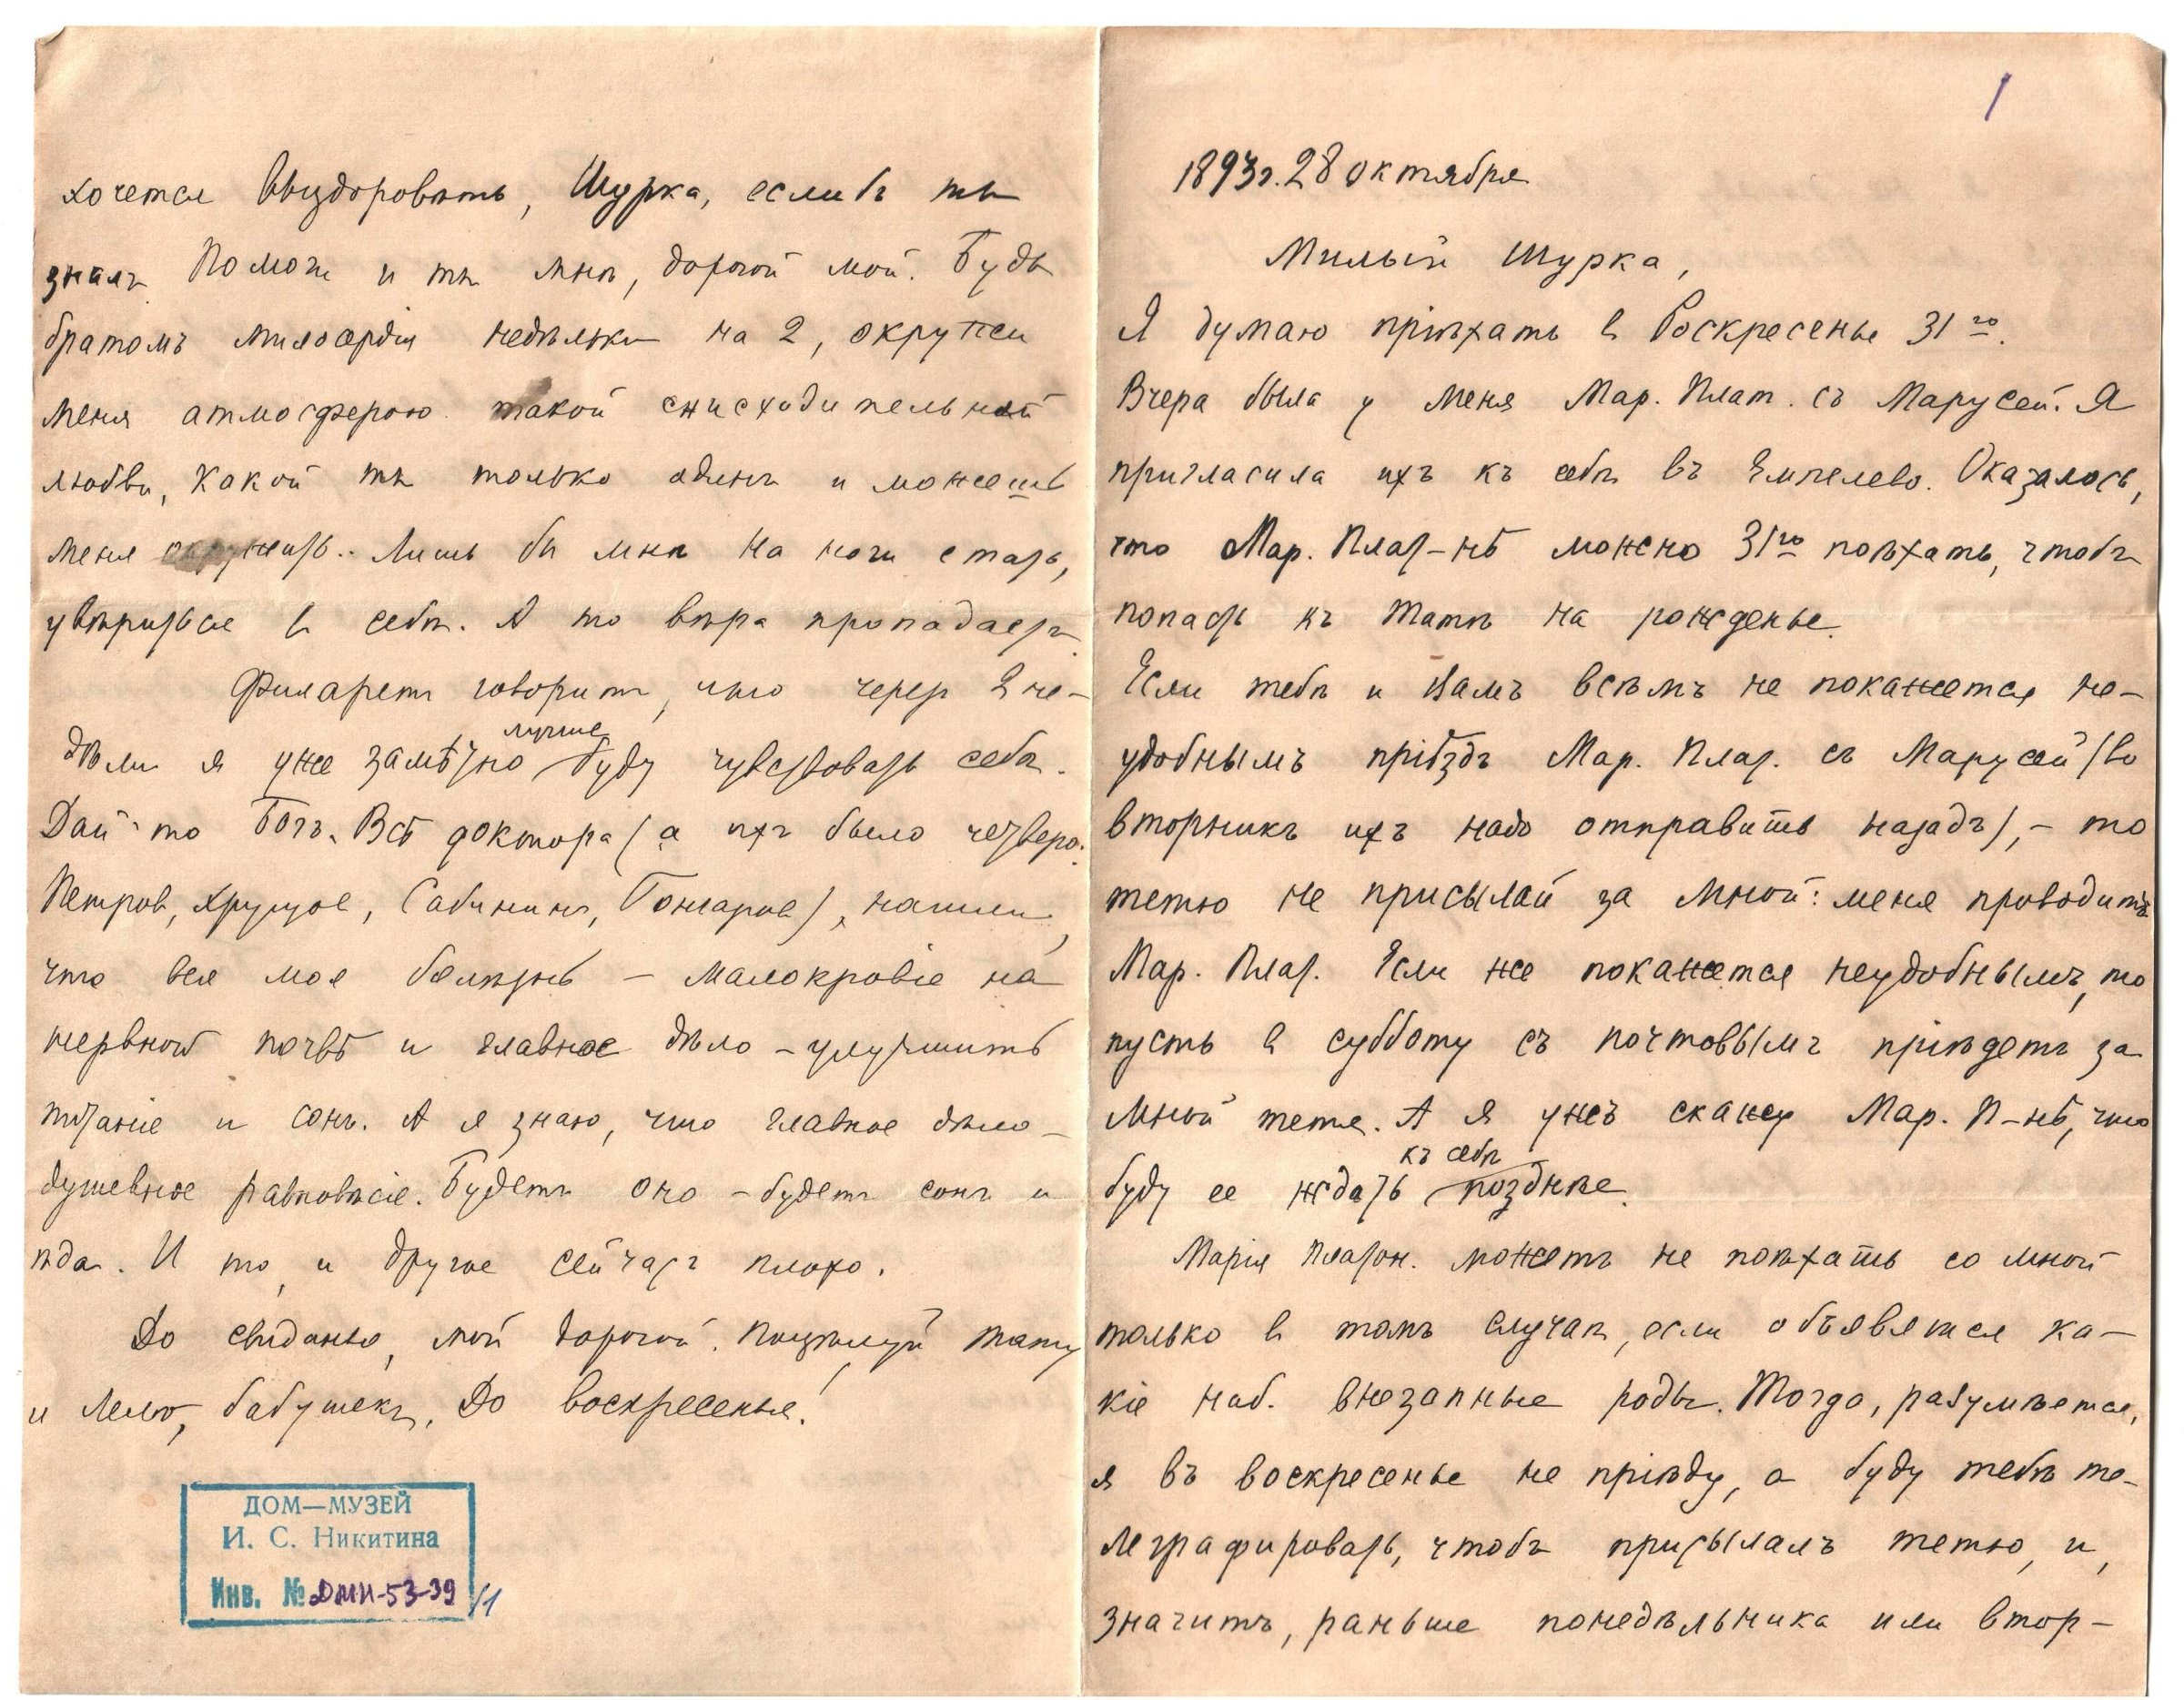 1
1893г. 28 октября
Милый Шурка,
Я думаю пріѣхать в Воскресенье 31го.
Вчера была у меня Мар. Плат. съ Марусей. Я
пригласила ихъ къ себѣ въ Емпелево. Оказалось,
что Мар. Плат-нѣ можно 31го поѣхать, чтобъ
попасть къ Татѣ на рожденье.
Если тебѣ и Вамъ всѣмъ не покажется не-
удобнымъ пріѣздъ Мар. Плат. съ Марусей (во
вторникъ ихъ надо отправить назадъ), – то
тетю не присылай за мной: меня проводитъ
Мар. Плат. Если же покажется неудобнымъ, то
пусть в субботу съ почтовымъ пріѣдетъ за
мной тетя. А я ужъ скажу Мар. П-нѣ, что
буду ее ждать къ себѣ позднѣе.
Марія Платон. можетъ не поѣхать со мной
только в томъ случаѣ, если объявятся ка-
кіе наб. внезапные роды. Тогда, разумѣется,
я въ воскресенье не пріѣду, а буду тебѣ те-
леграфировать, чтобъ присылалъ тетю, и,
значитъ, раньше понедѣльника или втор-
хочется выздоровѣть, Шурка, еслибъ ты
зналъ. Помоги и ты мнѣ, дорогой мой. Будь
братомъ милосердія недѣльки на 2, окружи
меня атмосферою такой снисходительной
любви, какой ты только одинъ и можешь
меня окружить.. Лишь бы мнѣ на ноги стать,
увѣриться в себѣ. А то вѣра пропадаетъ.
Филаретъ говоритъ, что черезъ 2 не-
дѣли я уже замѣтно лучше буду чувствовать себя.
Дай-то Богъ. Всѣ доктора (а ихъ было четверо:
Петров, Хрущов, Сабининъ, Гончаров), нашли,
что вся моя болѣзнь – малокровіе на
нервной почвѣ и главное дѣло – улучшить
питаніе и сонъ. А я знаю, что главное дѣло –
душевное равновѣсіе. Будетъ оно – будетъ сонъ и
ѣда. И то, и другое сейчасъ плохо.
До свиданья, мой дорогой. Поцѣлуй Тату
и Лелю, бабушекъ. До воскресенья!
ДОМ—МУЗЕЙ
И. С. Никитина
Инв. № ДМН-53-39/1